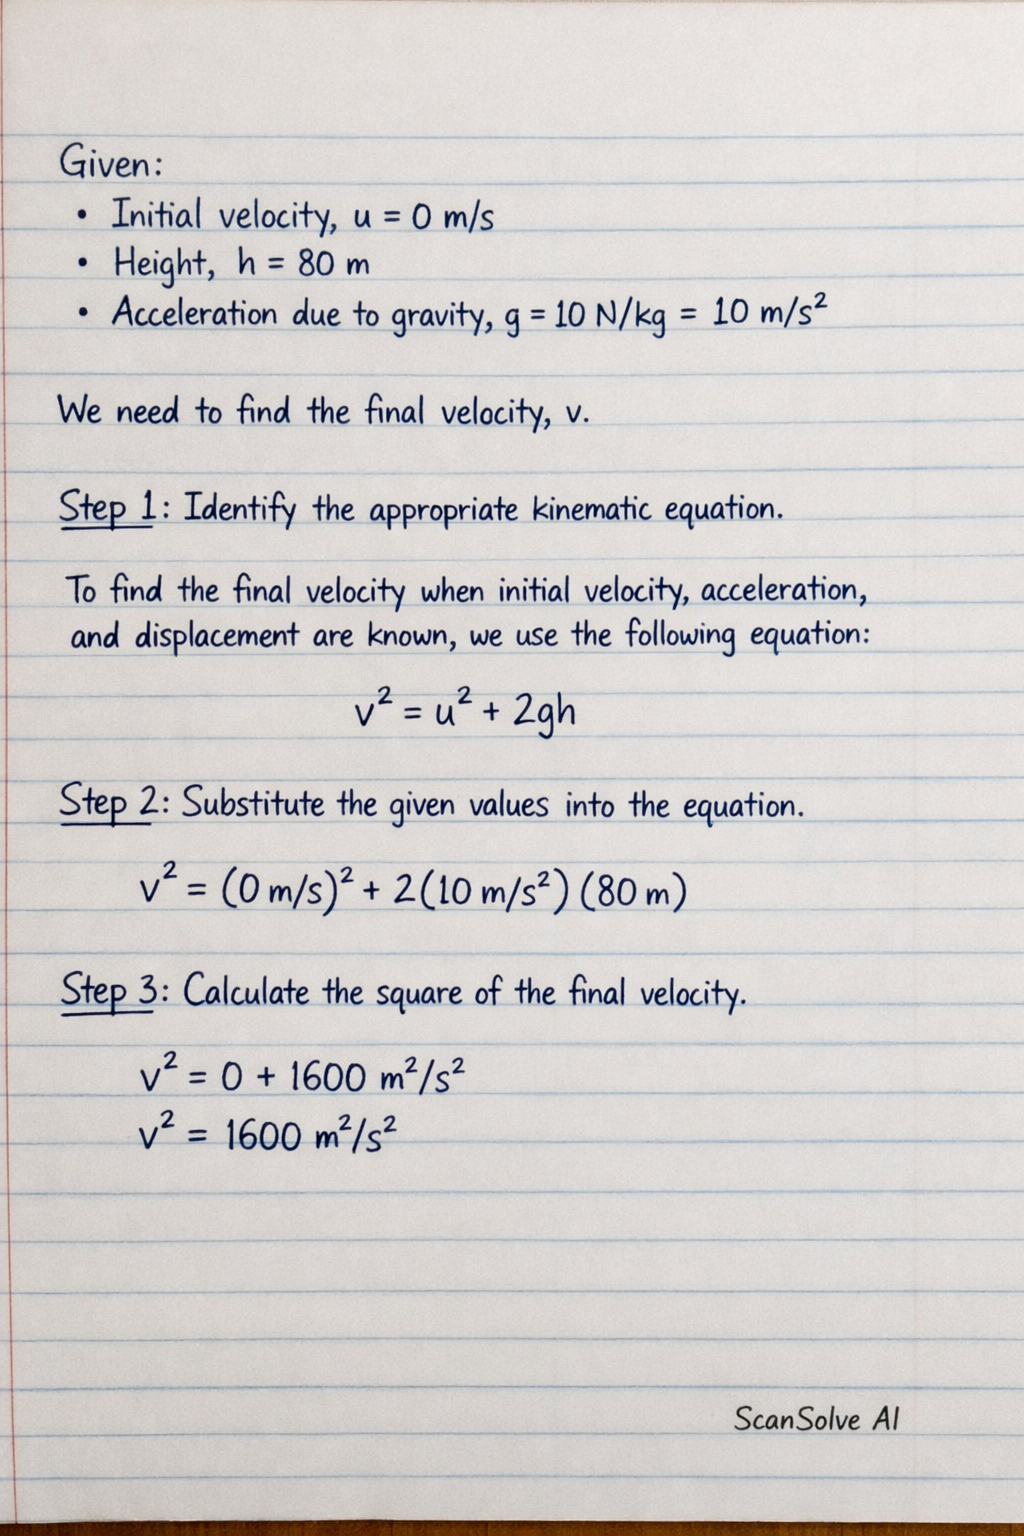 Given:
• Initial velocity, u = 0 m/s
• Height, h = 80 m
• Acceleration due to gravity, g = 10 N/kg = 10 m/s²
We need to find the final velocity, v.
Step 1: Identify the appropriate kinematic equation.
To find the final velocity when initial velocity, acceleration,
and displacement are known, we use the following equation:
v² = u² + 2gh
Step 2: Substitute the given values into the equation.
v² = (0 m/s)² + 2(10 m/s²) (80 m)
Step 3: Calculate the square of the final velocity.
v² = 0 + 1600 m²/s²
v² = 1600 m²/s²
ScanSolve AI